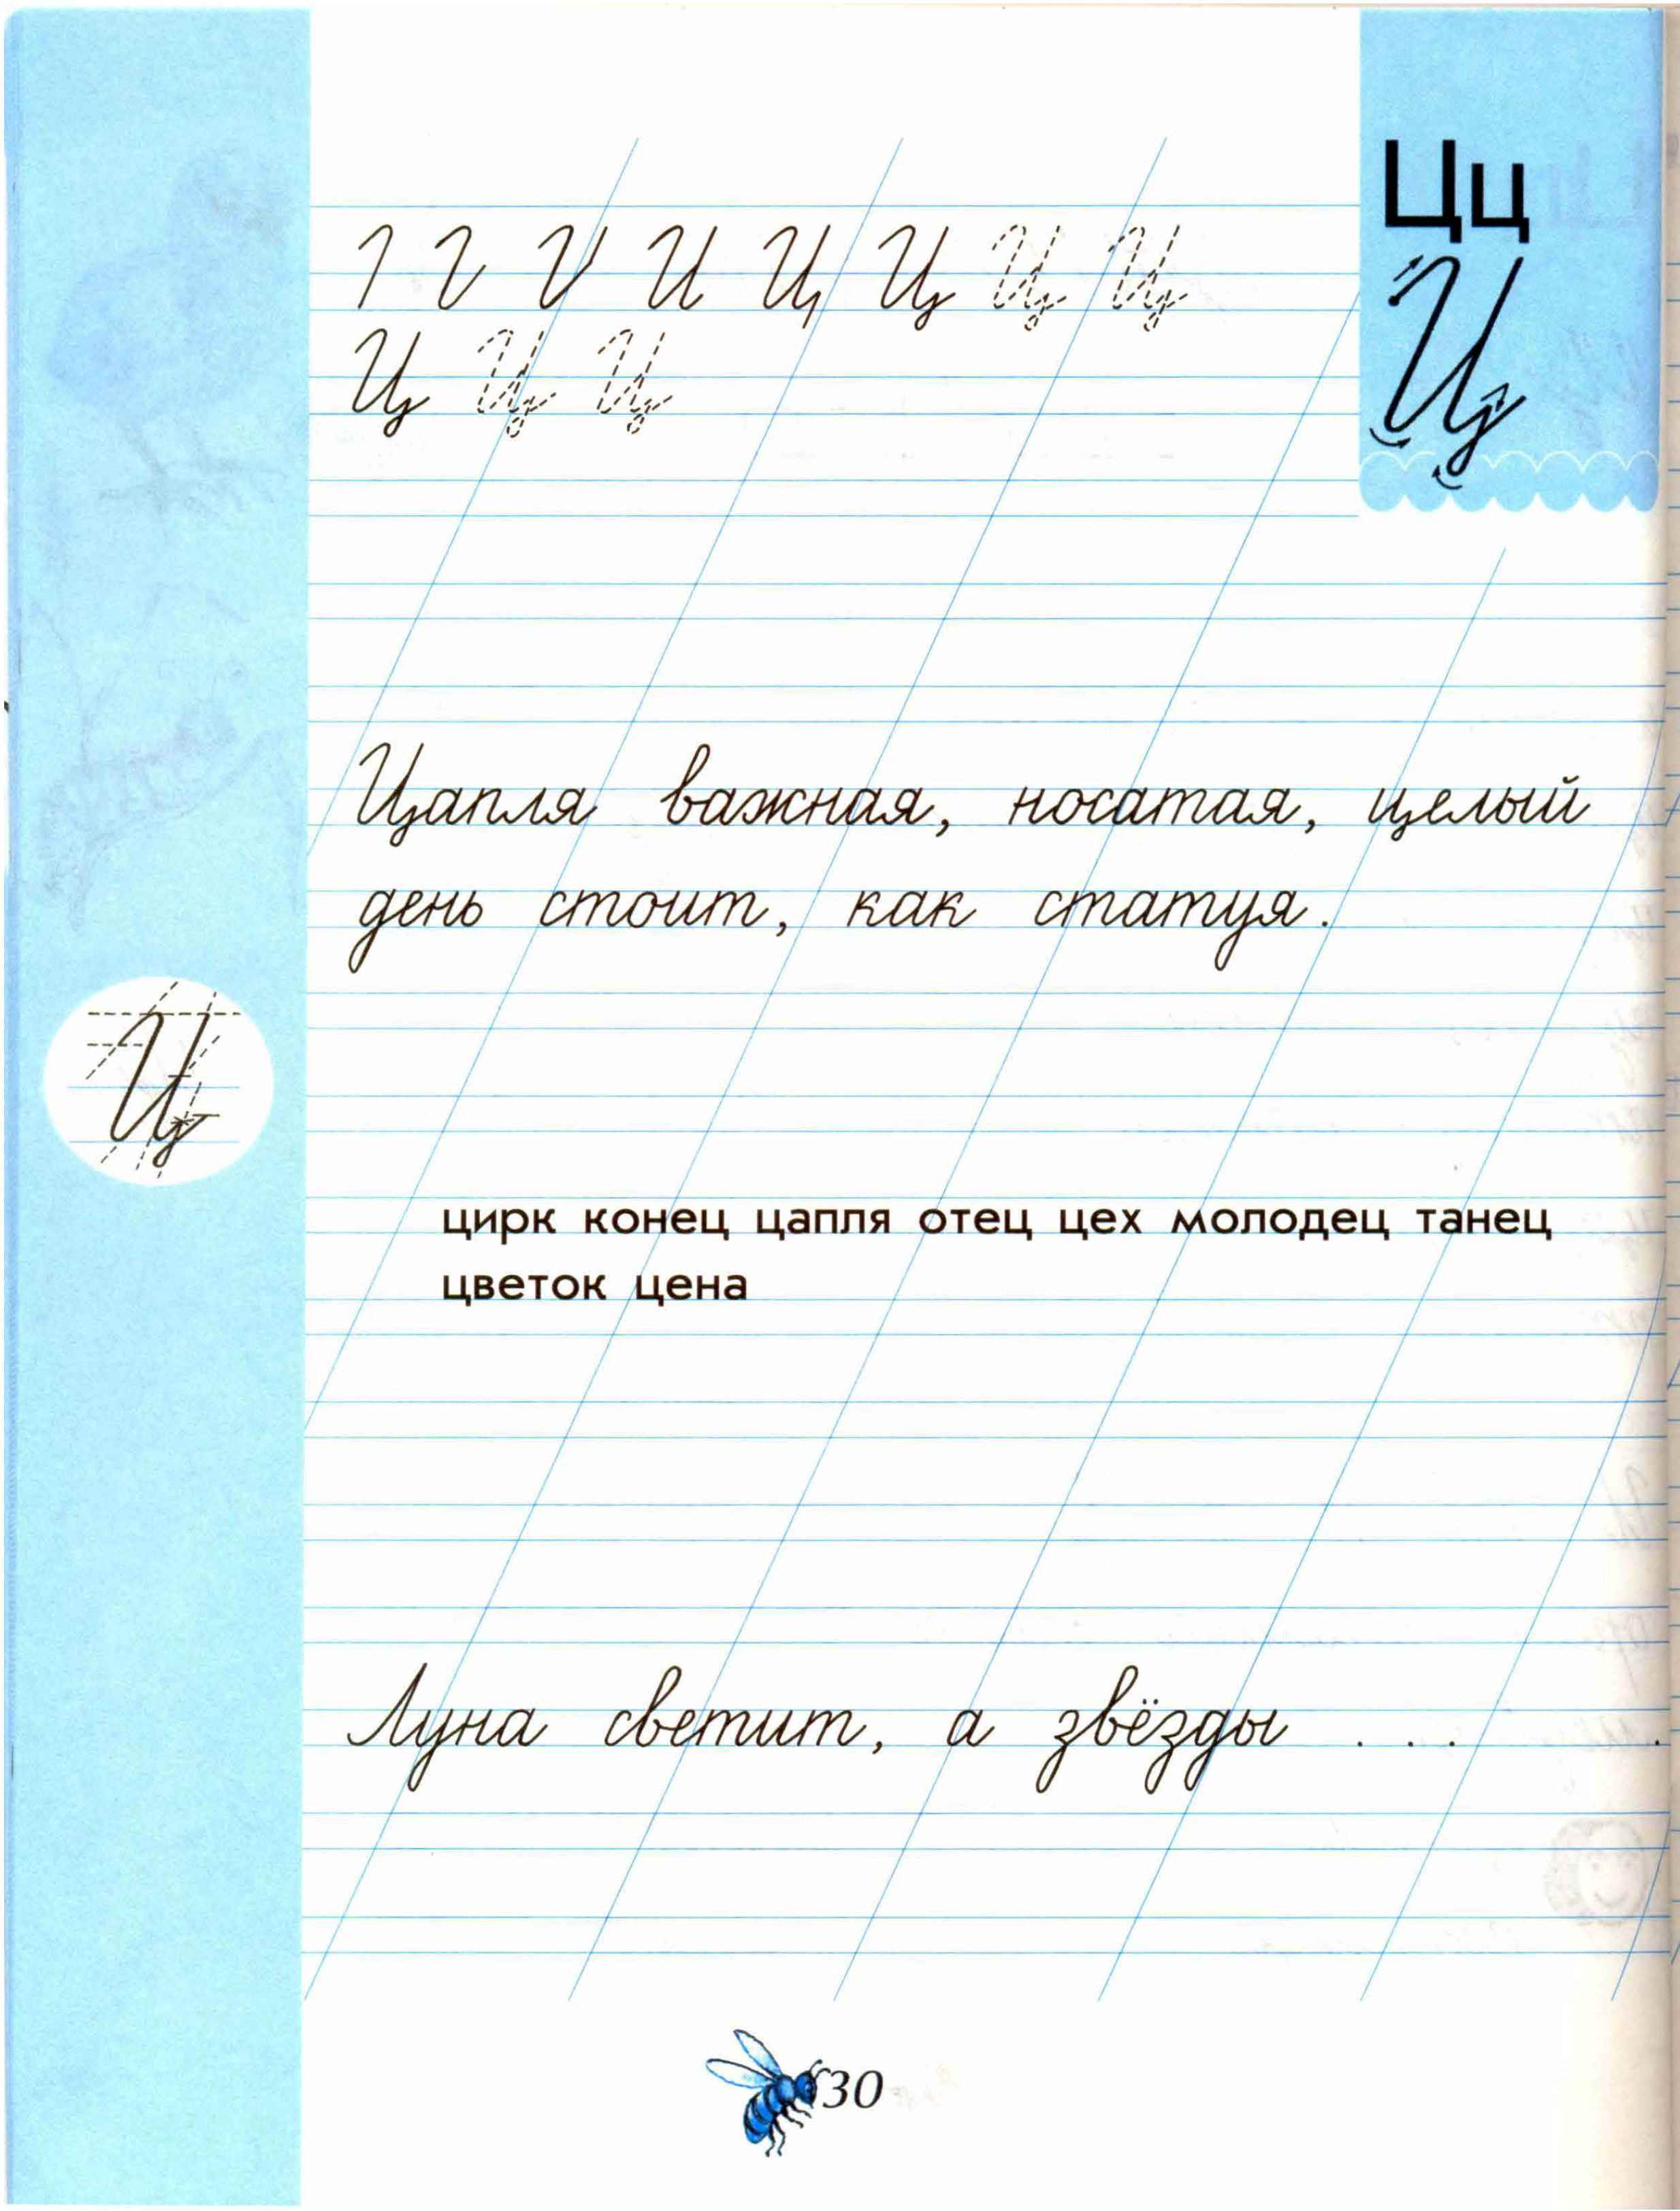 Цц
Ц
Ц Ц Ц Ц
Ц Ц Ц
Цапля важная, носатая, целый
день стоит, как статуя.
Ц
цирк конец цапля отец цех молодец танец
цветок цена
Луна светит, а звёзды . . . .
30